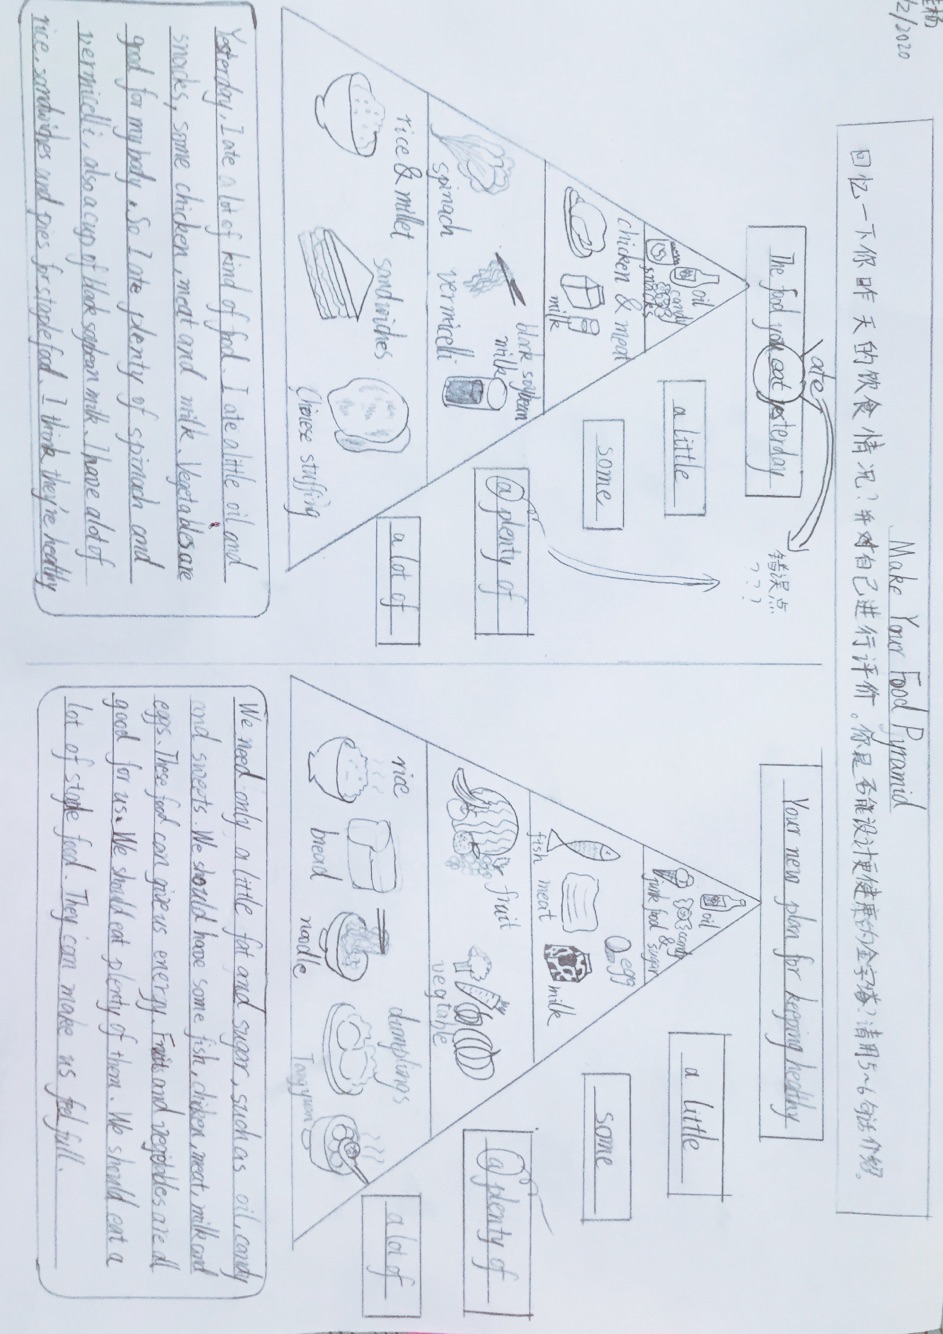 杨
/2/2020
Make Your Food Pyramid
回忆一下你昨天的饮食情况?并对自己进行评价。你是否能设计更健康的金字塔?请用5~6句话介绍。
The food you eat yesterday
ate
错误点
???
a little
some
a plenty of
a lot of
oil
candy
snacks
chicken & meat
milk
spinach
vermicelli
black soybean
milk
rice & millet
sandwiches
Chinese stuffing
Yesterday, I ate a lot of kind of food. I ate a little oil and
snacks, some chicken, meat and milk. Vegetables are
good for my body. So I ate plenty of spinach and
vermicelli, also a cup of black soybean milk. I have a lot of
rice, sandwiches and pies for staple food. I think they're healthy
Your new plan for keeping healthy
a little
some
a plenty of
a lot of
oil
candy
junk food & sugar
fish
meat
egg
milk
fruit
vegetable
rice
bread
noodle
dumplings
Tangyuan
We need only a little fat and sugar, such as oil, candy
and sweets. We should have some fish, chicken meat, milk and
eggs. These food can give us energy. Fruit and vegetables are all
good for us. We should eat plenty of them. We should eat a
lot of staple food. They can make us feel full.